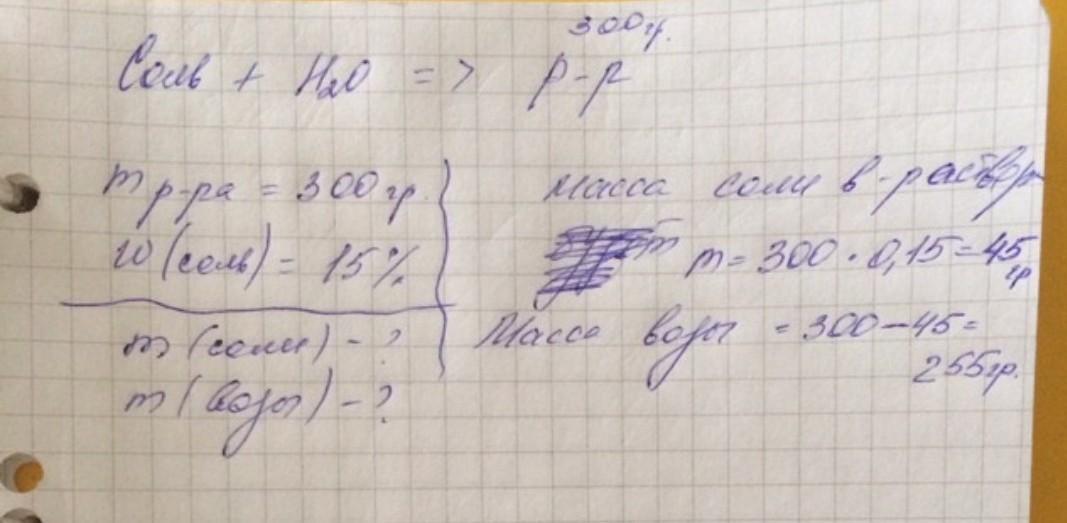 300гр.
Соль + H₂O => р-р
m р-ра = 300 гр.
w (соль) = 15%
m (соли) - ?
m (воды) - ?
масса соли в р-раствор
m = 300 · 0,15 = 45 гр
Масса воды = 300 - 45 =
255гр.